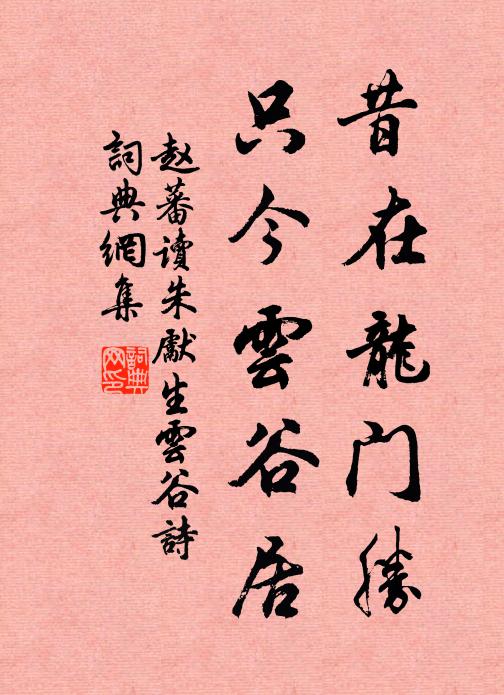 昔在龍门勝
只今雲谷居
赵蕃讀朱獻生雲谷詩
詞典網集
詞典网印